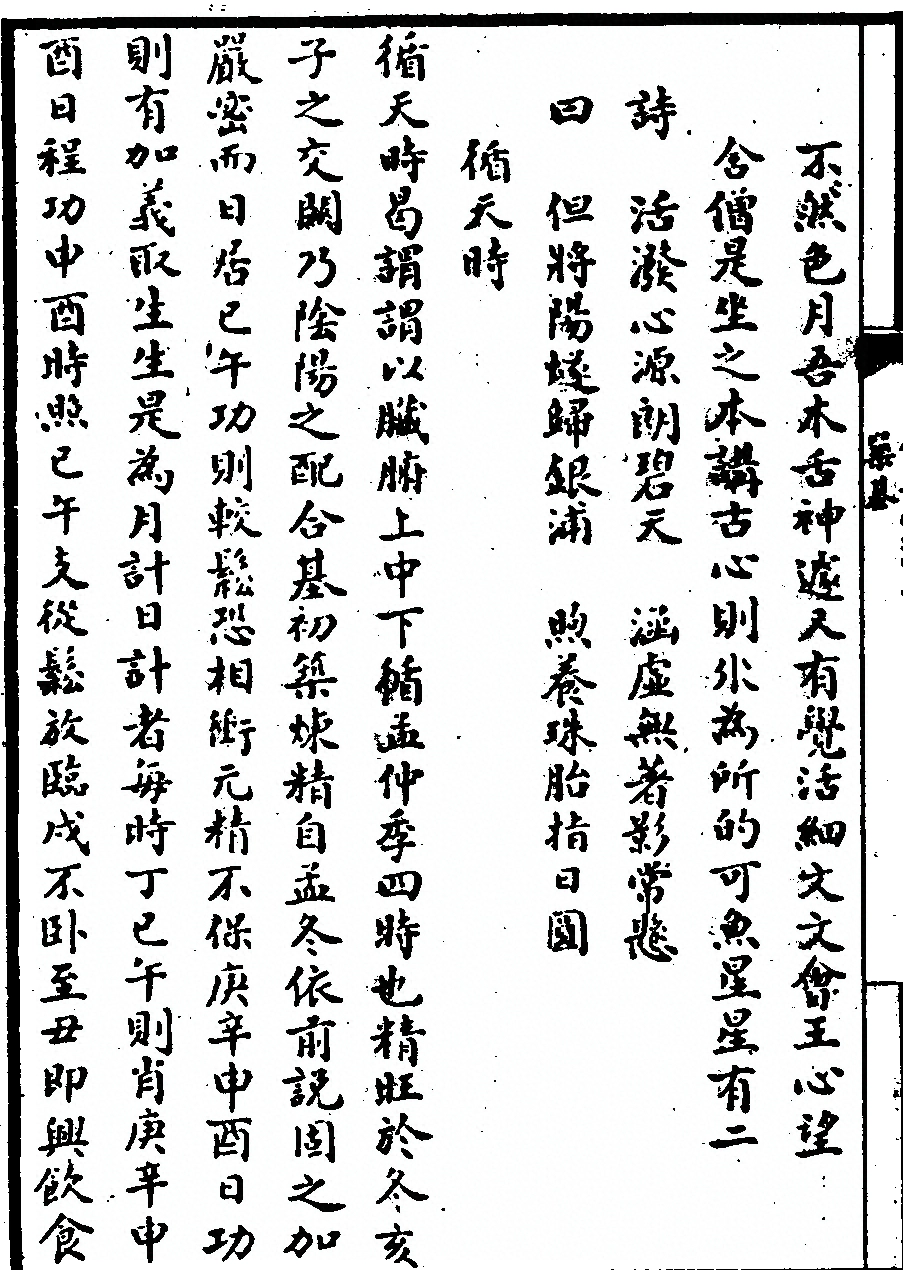 築基
不然色月吾木舌神遽尺有覺活細文文會王心望
含僧是坐之本講古心則外為所的可魚星星有二
詩　活潑心源朗碧天　涵虛無著影常懸
曰　但將陽燧歸銀浦　煦養珠胎指日圓
循天時
循天時曷謂謂以臟腑上中下循孟仲季四時也精旺於冬亥
子之交關乃陰陽之配合基初築煉精自孟冬依前說固之加
嚴密而日居巳午功則較鬆恐相衝元精不保庚辛申酉日功
則有加義取生生是為月計日計者每時丁巳午則肖庚辛申
酉日程功申酉時照巳午支從鬆放臨戌不卧至丑即興飲食